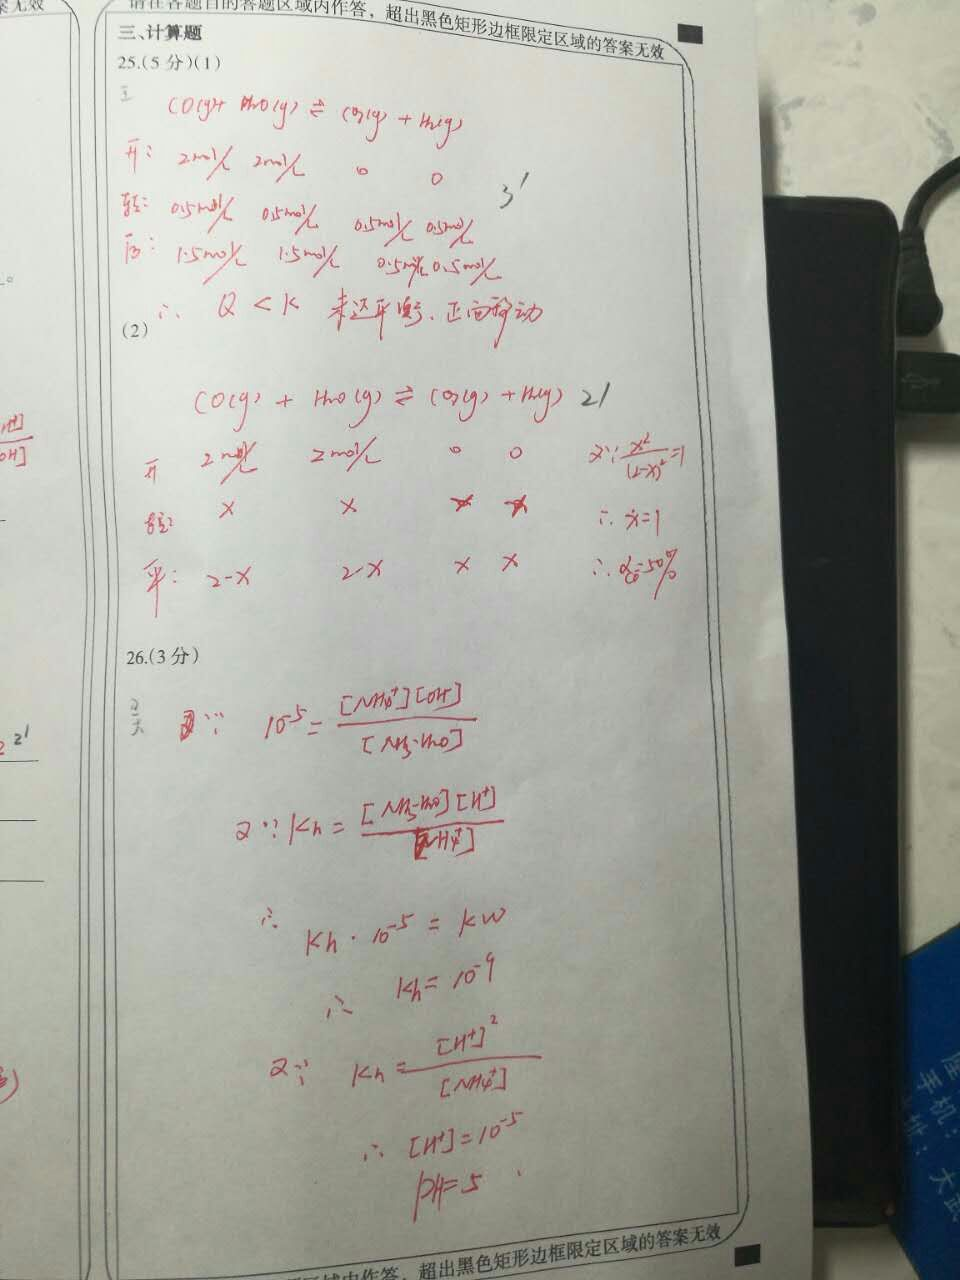 案无效
请在各题目的答题区域内作答，超出黑色矩形边框限定区域的答案无效
三、计算题
25.(5分)(1)
CO(g)+ H2O(g) ⇌ CO2(g) + H2(g)
开: 2mol/L 2mol/L 0 0
3'
转: 0.5mol/L 0.5mol/L 0.5mol/L 0.5mol/L
1.5mol/L 1.5mol/L 0.5mol/L 0.5mol/L
∴ Q < K 未达平衡、正向移动
(2)
CO(g) + H2O(g) ⇌ CO2(g) + H2(g) 2'
开 2mol/L 2mol/L 0 0 又∵ x²/(2-x)² =1
转: x x x x ∴ x=1
平: 2-x 2-x x x ∴ αCO=50%
26.(3分)
∵ 10⁻⁵ = [NH4⁺][OH⁻]/[NH3·H2O]
又∵ Kh = [NH3·H2O][H⁺]/[NH4⁺]
∴ Kh · 10⁻⁵ = Kw
∴ Kh = 10⁻⁹
又∵ Kh = [H⁺]²/[NH4⁺]
∴ [H⁺] = 10⁻⁵
PH=5
答，超出黑色矩形边框限定区域的答案无效
2'
手机：
址：大武